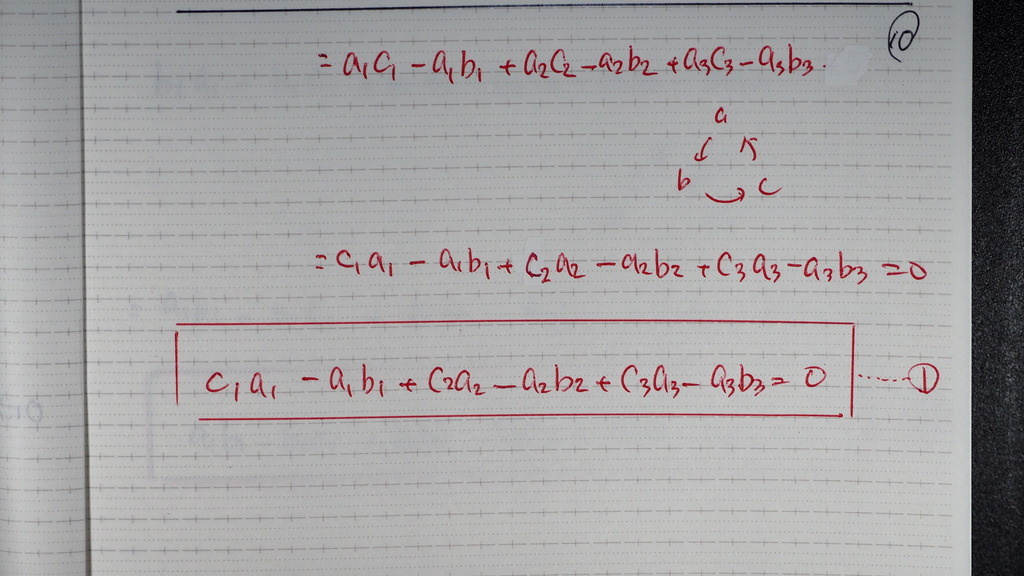 10
= a₁c₁ - a₁b₁ + a₂c₂ - a₂b₂ + a₃c₃ - a₃b₃.
a
↙ ↖
b → c
= c₁a₁ - a₁b₁ + c₂a₂ - a₂b₂ + c₃a₃ - a₃b₃ = 0
c₁a₁ - a₁b₁ + c₂a₂ - a₂b₂ + c₃a₃ - a₃b₃ = 0 ......①